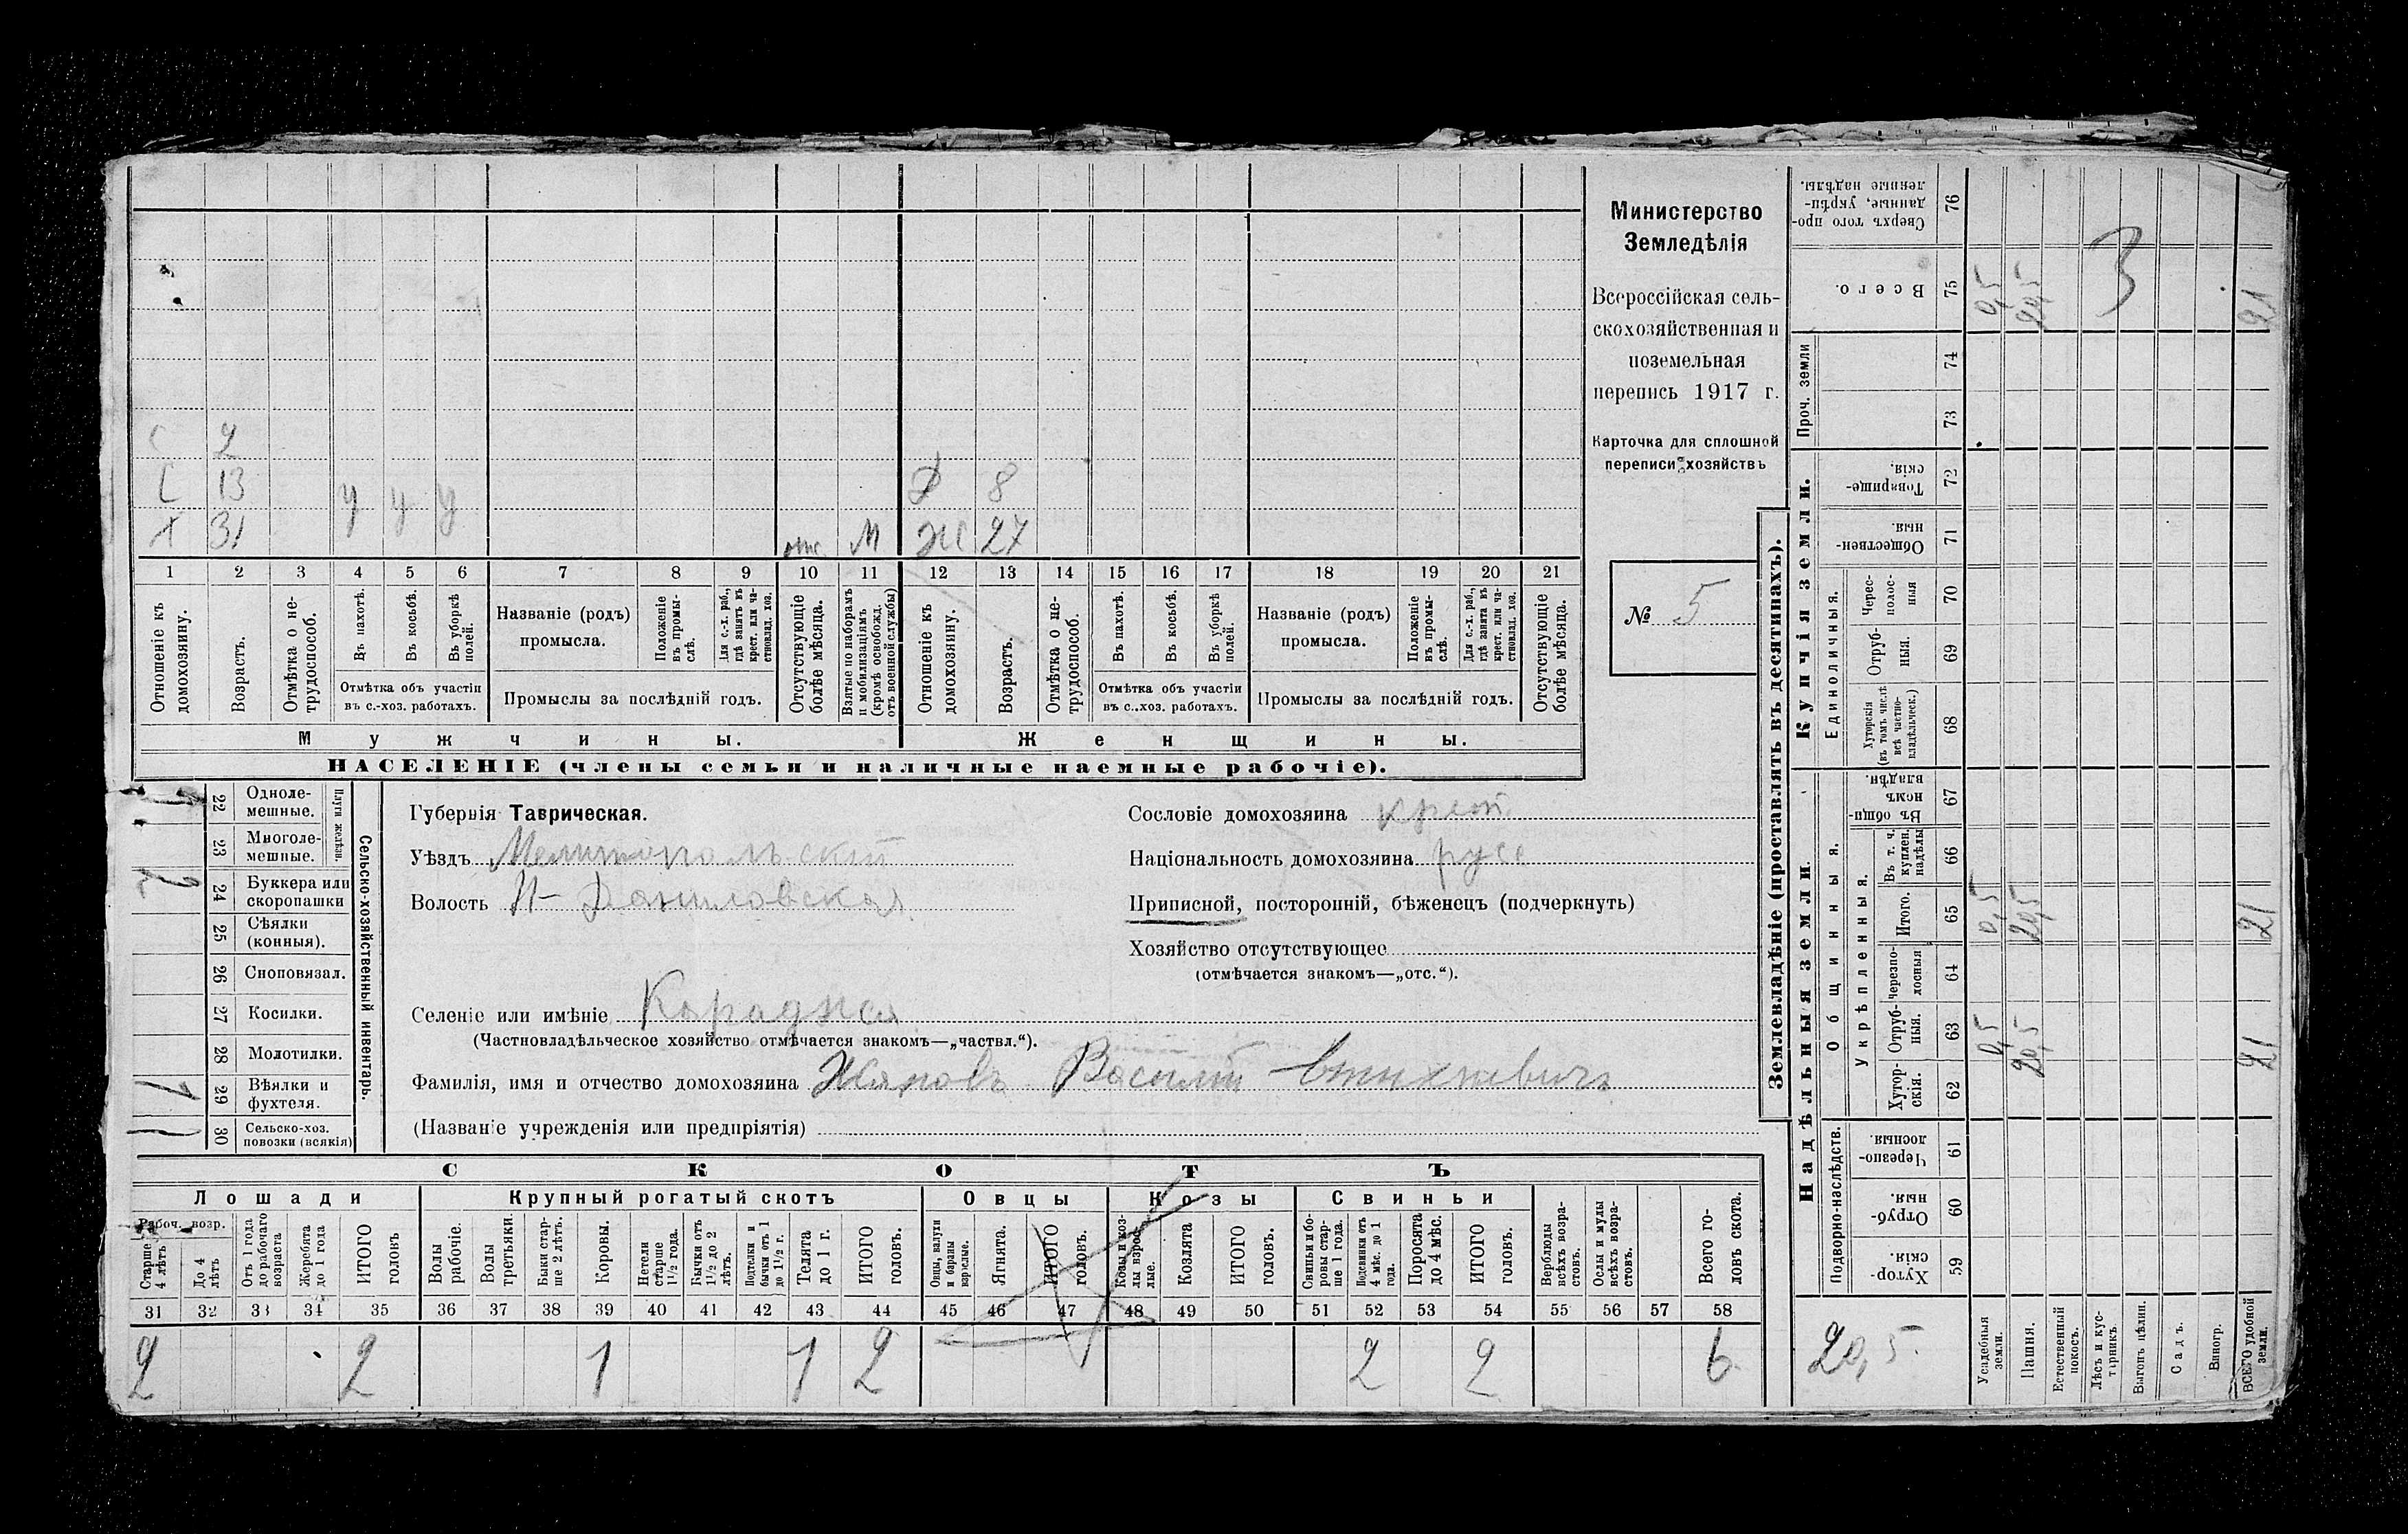 Министерство
Земледѣлія
Всероссійская сель-
скохозяйственная и
поземельная
перепись 1917 г.
Карточка для сплошной
переписи хозяйствъ
№ 5
С 2
С 13 у у у
Х 31 отс. М
Д 8
Ж 27
1 2 3 4 5 6 7 8 9 10 11 12 13 14 15 16 17 18 19 20 21
Отношеніе къ домохозяину.
Возрастъ.
Отмѣтка о не-трудоспособ.
Въ пахотѣ.
Въ косьбѣ.
Въ уборкѣ полей.
Отмѣтка объ участіи въ с.-хоз. работахъ.
Названіе (родъ) промысла.
Положеніе въ промы-слѣ.
Для с.-х. раб., гдѣ занятъ въ крест. или ча-стновлад. хоз.
Промыслы за послѣдній годъ.
Отсутствующіе болѣе мѣсяца.
Взятые по наборамъ и мобилизаціямъ (кромѣ освобожд. отъ военной службы)
Отношеніе къ домохозяину.
Возрастъ.
Отмѣтка о не-трудоспособ.
Въ пахотѣ.
Въ косьбѣ.
Въ уборкѣ полей.
Отмѣтка объ участіи въ с.-хоз. работахъ.
Названіе (родъ) промысла.
Положеніе въ промы-слѣ.
Для с.-х. раб., гдѣ занята въ крест. или ча-стновлад. хоз.
Промыслы за послѣдній годъ.
Отсутствующіе болѣе мѣсяца.
Мужчины.
Женщины.
НАСЕЛЕНІЕ (члены семьи и наличные наемные рабочіе).
Сельско-хозяйственный инвентарь.
Плуги желѣзн.
22 Одноле-мешные.
23 Многоле-мешные.
24 Буккера или скоропашки 2
25 Сѣялки (конныя).
26 Сноповязал.
27 Косилки.
28 Молотилки.
29 Вѣялки и фухтеля. 1
30 Сельско-хоз. повозки (всякія) 1
Губернія Таврическая.
Уѣздъ Мелитопольскій
Волость Н-Даниловская
Селеніе или имѣніе Караджа
(Частновладѣльческое хозяйство отмѣчается знакомъ—„частвл.“).
Фамилія, имя и отчество домохозяина Василій
(Названіе учрежденія или предпріятія)
Сословіе домохозяина крест
Національность домохозяина русс
Приписной, посторонній, бѣженецъ (подчеркнуть)
Хозяйство отсутствующее
(отмѣчается знакомъ—„отс.“).
СКОТЪ
Лошади
Крупный рогатый скотъ
Овцы
Козы
Свиньи
Рабоч. возр.
Старше 4 лѣтъ
До 4 лѣтъ
Отъ 1 года до рабочаго возраста
Жеребята до 1 года
ИТОГО головъ
Волы рабочіе.
Волы третьяки.
Быки стар-ше 2 лѣтъ.
Коровы.
Нетели старше 1½ года.
Бычки отъ 1½ до 2 лѣтъ.
Подтелки и бычки отъ 1 до 1½ г.
Телята до 1 г.
ИТОГО головъ.
Овцы, валухи и бараны взрослые.
Ягнята.
ИТОГО головъ.
Козы и коз-лы взрос-лые.
Козлята
ИТОГО головъ.
Свиньи и бо-ровы стар-ше 1 года.
Подсвинки отъ 4 мѣс. до 1 года.
Поросята до 4 мѣс.
ИТОГО головъ.
Верблюды всѣхъ возра-стовъ.
Ослы и мулы всѣхъ возра-стовъ.
Всего го-ловъ скота.
31 32 33 34 35 36 37 38 39 40 41 42 43 44 45 46 47 48 49 50 51 52 53 54 55 56 57 58
2 2 1 1 2 2 2 6
Землевладѣніе (проставлять въ десятинахъ).
Купчія земли.
Надѣльныя земли.
Сверхъ того про-данные, укрѣп-ленные надѣлы. 76
Всего. 75 0,5 20,5 21
3
Проч. земли 74 73
Товарище-скія. 72
Обществен-ныя. 71
Единоличныя.
Черес-полос-ныя 70
Отруб-ныя. 69
Хуторскія (въ томъ числѣ всѣ частно-владѣльческ.) 68
Общинныя.
Въ общи-номъ владѣн. 67
Укрѣпленныя.
Въ т. ч. куплен. надѣлы 66
Итого. 65 0,5 20,5 21
Черезпо-лосныя 64
Отруб-ныя. 63 0,5 20,5 21
Хутор-скія. 62
Подворно-наслѣдств.
Черезпо-лосныя. 61
Отруб-ныя. 60
Хутор-скія. 59
20,5
Усадебныя земли.
Пашня.
Естественный покосъ.
Лѣсъ и кус-тарникъ.
Выгонъ цѣлин.
Садъ.
Виногр.
ВСЕГО удобной земли.